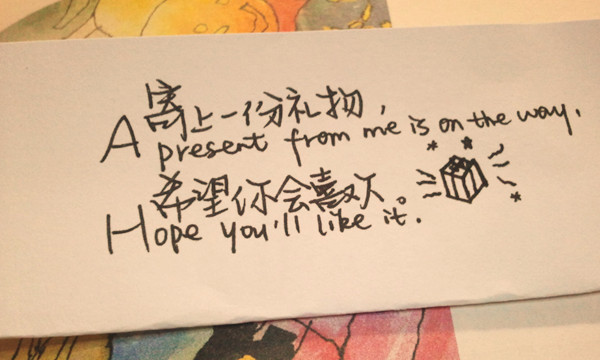 寄上一份礼物，
A present from me is on the way.
希望你会喜欢。
Hope you'll like it.